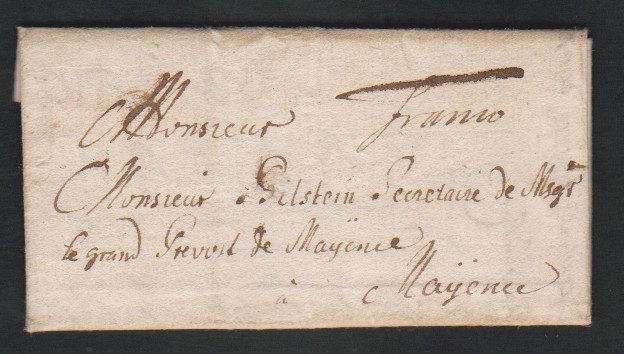 Monsieur franco
Monsieur Gelstein Secretaire de Msgr
le grand Prevost de Maÿence
à Maÿence